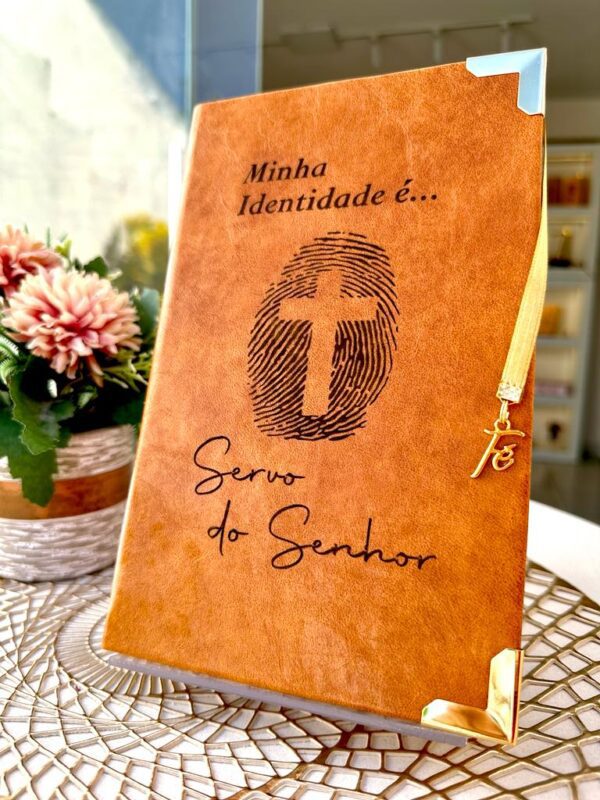 Minha
Identidade é...
Servo
do Senhor
Fé